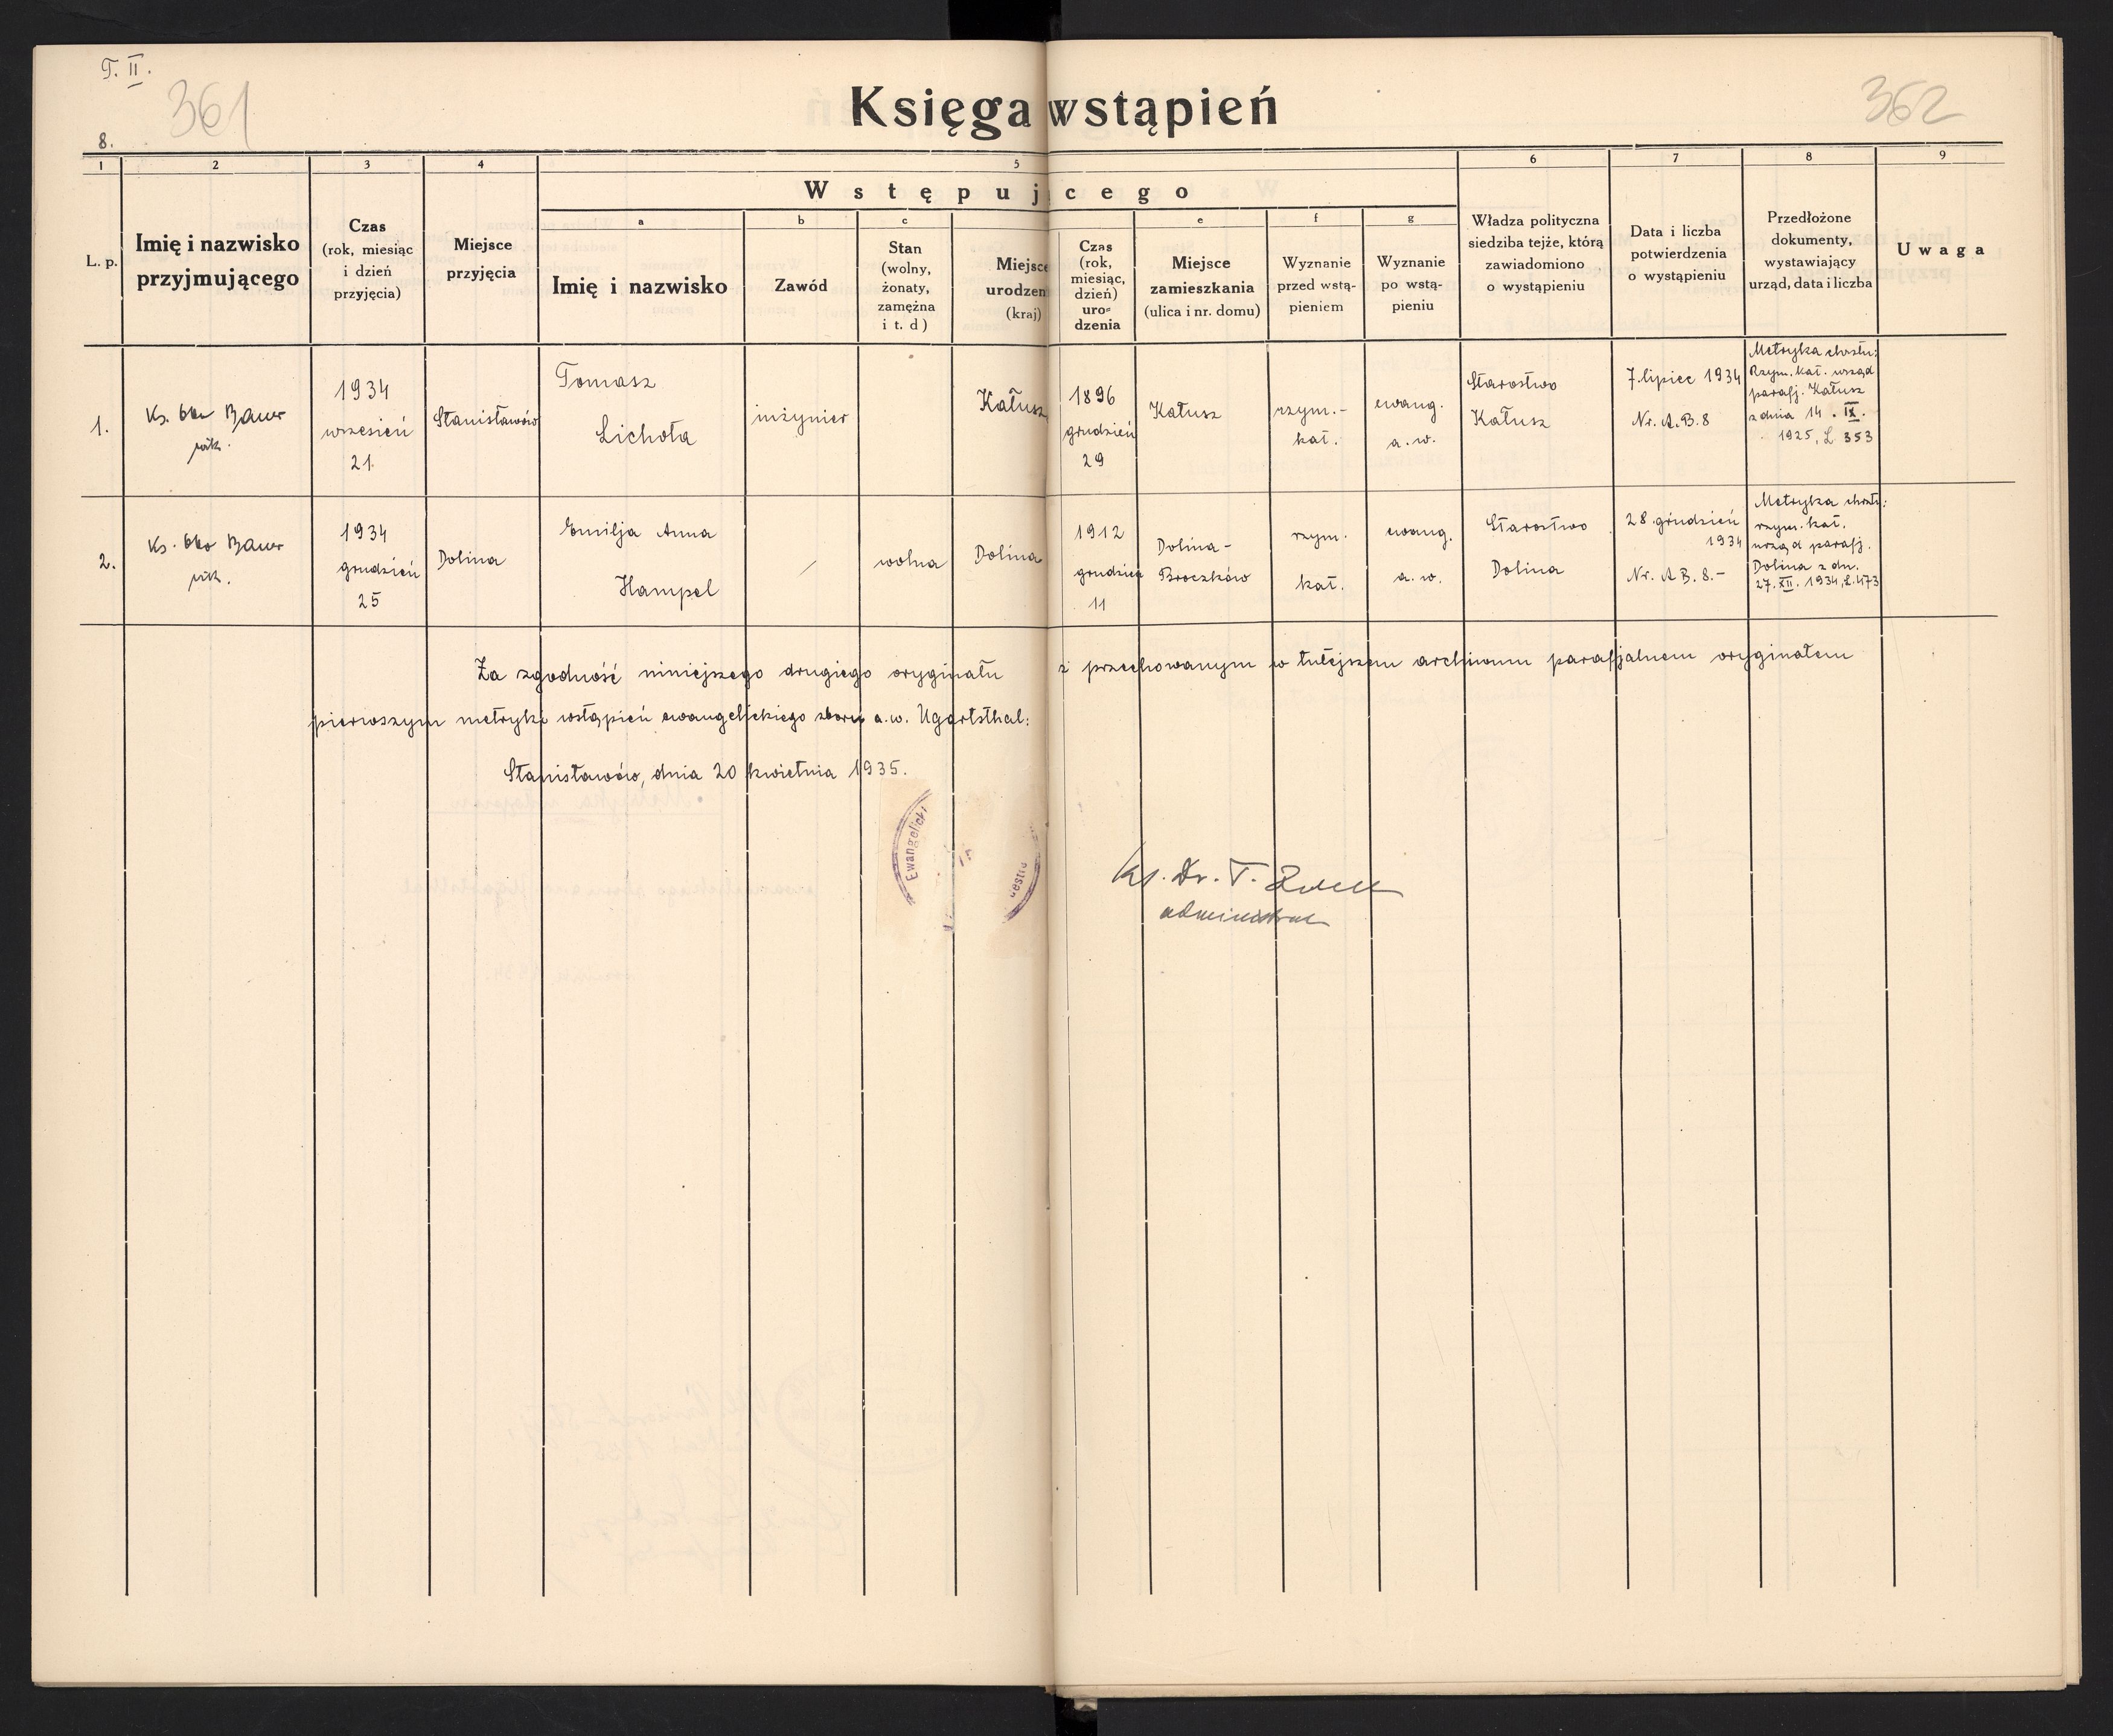 T. II.
361
362
Księga wstąpień
8.
1 2 3 4 5 6 7 8 9
Wstępującego
a b c e f g
L. p.
Imię i nazwisko
przyjmującego
Czas
(rok, miesiąc
i dzień
przyjęcia)
Miejsce
przyjęcia
Imię i nazwisko
Zawód
Stan
(wolny,
żonaty,
zamężna
i t. d)
Miejsce
urodzen
(kraj)
Czas
(rok,
miesiąc,
dzień)
uro-
dzenia
Miejsce
zamieszkania
(ulica i nr. domu)
Wyznanie
przed wstą-
pieniem
Wyznanie
po wstą-
pieniu
Władza polityczna
siedziba tejże, którą
zawiadomiono
o wystąpieniu
Data i liczba
potwierdzenia
o wystąpieniu
Przedłożone
dokumenty,
wystawiający
urząd, data i liczba
Uwaga
1.
Ks. Bauer
wik.
1934
wrzesień
21.
Stanisławów
Tomasz
Lichota
inżynier
Kałusz
1896
grudzień
29
Kałusz
rzym.-
kat.
ewang.
a. w.
Starostwo
Kałusz
7. lipiec 1934
Nr. A.B.8
Metryka chrztu:
Rzym. kat. urząd
parafj. Kałusz
z dnia 14. IX.
1925, L 353
2.
Ks. Bauer
wik.
1934
grudzień
25
Dolina
Emilja Anna
Hampel
/
wolna
Dolina
1912
grudzień
11
Dolina-
Broczków
rzym.
kat.
ewang.
a. w.
Starostwo
Dolina
28. grudzień
1934
Nr. A B. 8.-
Metryka chrztu:
rzym. kat.
urząd parafj.
Dolina z dn.
27. XII. 1934, L. 473
Za zgodność niniejszego drugiego oryginału z przechowanym w tutejszem archiwum parafjalnem oryginałem
pierwszym metryki wstąpień ewangelickiego zboru a.w. Ugartsthal:
Stanisławów, dnia 20 kwietnia 1935.
Ewangelicki
Ks. Dr. T.
administrator